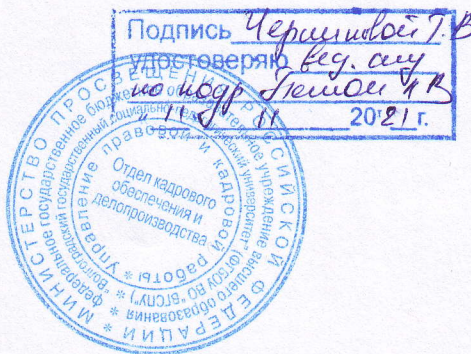 Подпись Т. В
удостоверяю вед. спец
по кадр
" 11 " 11 2021 г.
* МИНИСТЕРСТВО ПРОСВЕЩЕНИЯ РОССИЙСКОЙ ФЕДЕРАЦИИ *
федеральное государственное бюджетное образовательное учреждение высшего образования *
"Волгоградский государственный социально-педагогический университет" (ФГБОУ ВО "ВГСПУ") *
* Управление правовой и кадровой работы
Отдел кадрового
обеспечения и
делопроизводства